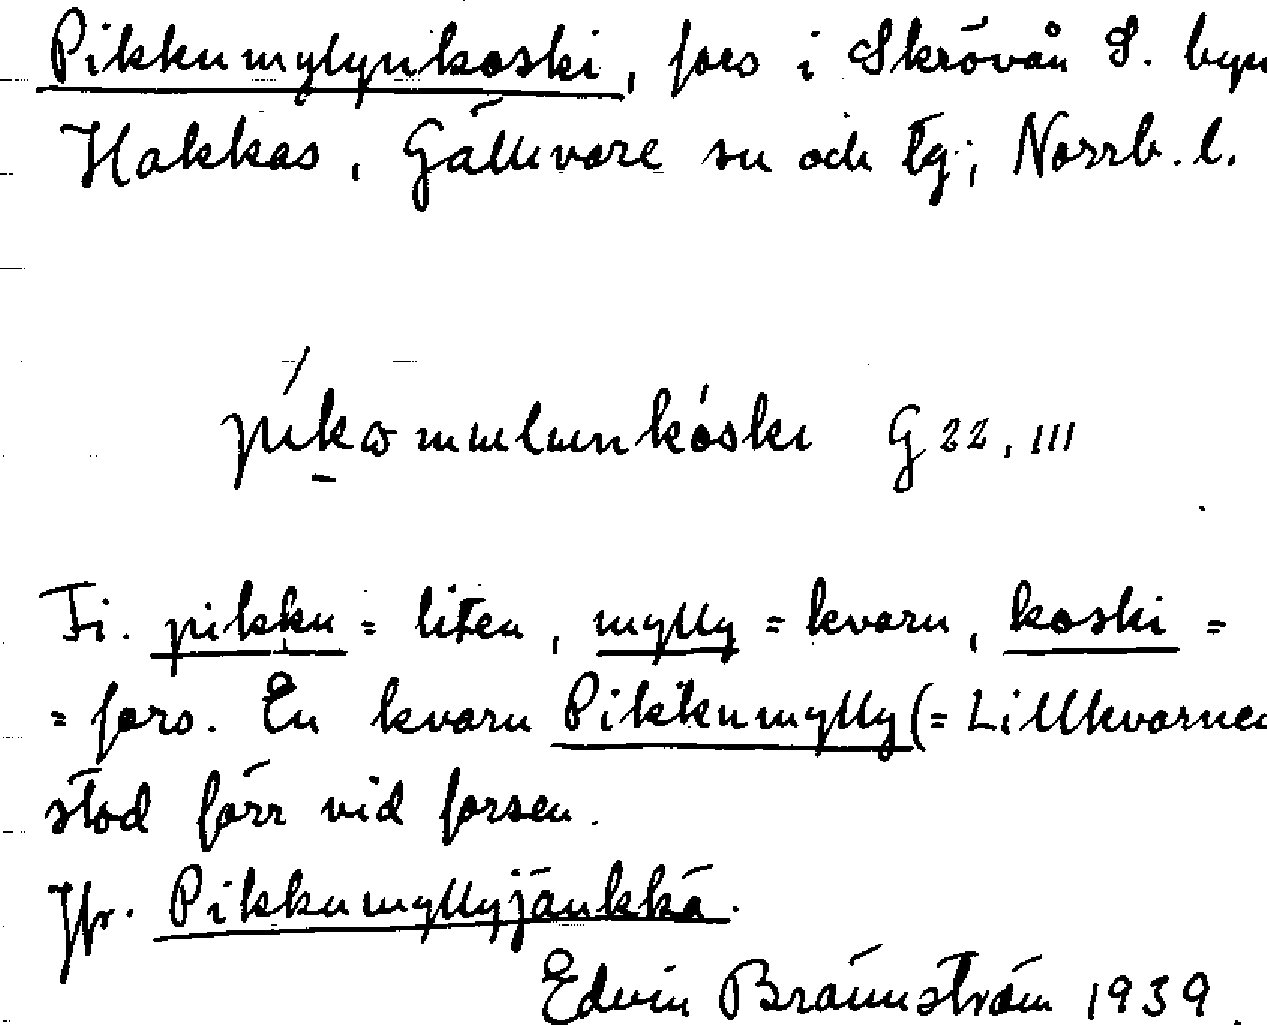 Pikkumylynkoski, fors i Skrövån S. byn
Hakkas, Gällivare sn och tg; Norrb. l.
G 22, III
Fi. pikku = liten, mylly = kvarn, koski =
= fors. En kvarn Pikkumylly (= Lillkvarnen
stod förr vid forsen.
Jfr. Pikkumyllyjänkkä.
Edvin Brännström 1939.